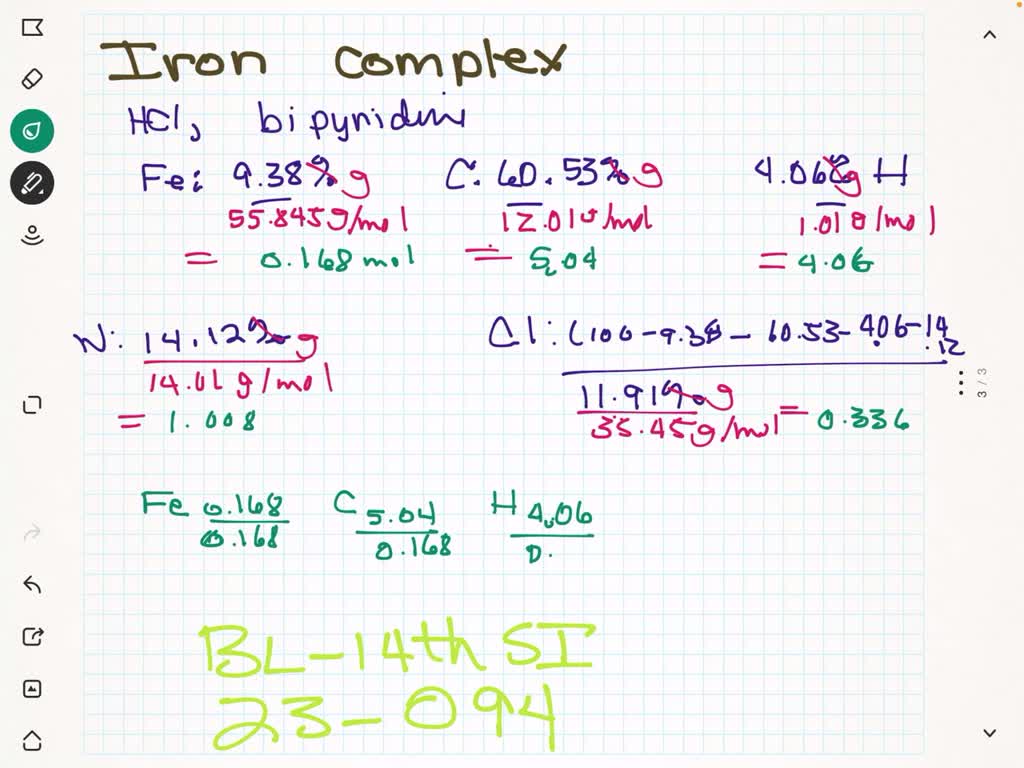 Iron complex
HCl, bipyridine
Fe: 9.38% g C. 60.53% g 4.06% g H
55.845 g/mol 12.01 g/mol 1.01 g/mol
= 0.168 mol = 5.04 = 4.06
N: 14.12% g Cl: (100 - 9.38 - 60.53 - 4.06 - 14.12
14.01 g/mol 11.91% g
= 1.008 35.45 g/mol = 0.336
Fe 0.168 C 5.04 H 4.06
0.168 0.168 0.
BL-14th SI
23-094
3 / 3